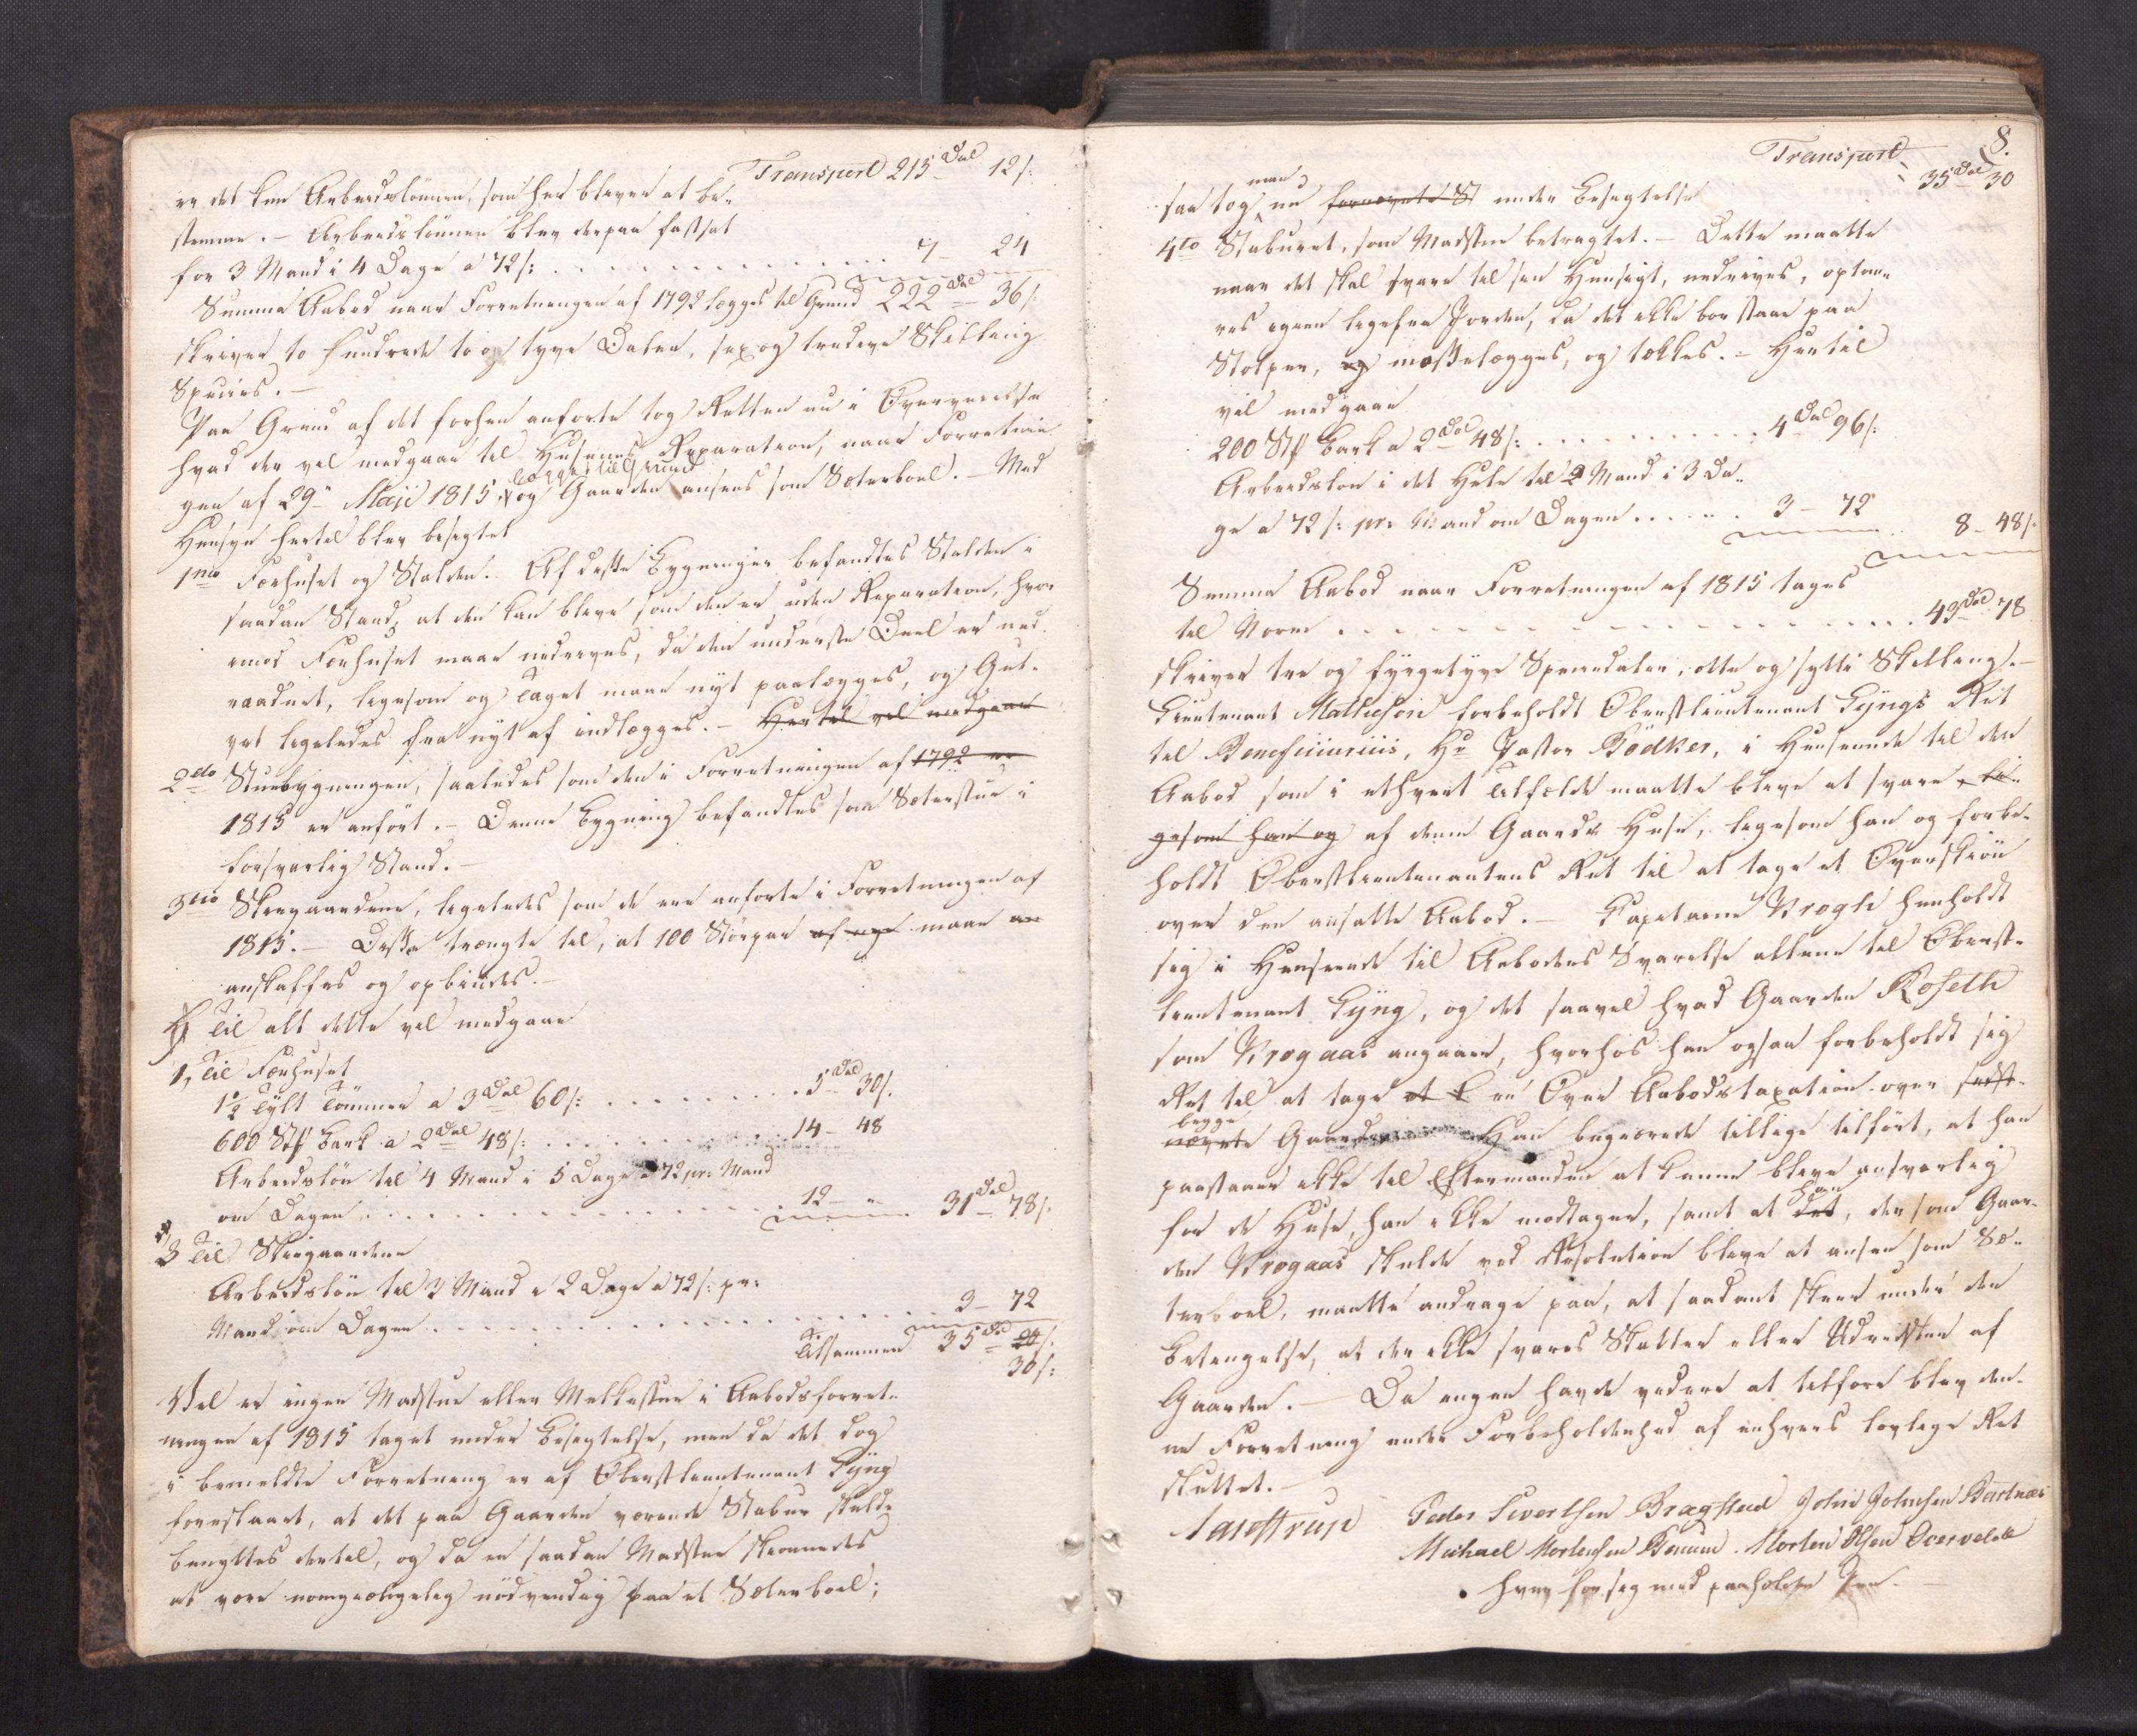 Transport 215 Dal 12 s:
er det kun Arbeidslönnen, som her bliver at be-
stemme. - Arbeidslönnen blev derpaa fastsat
for 3 Mand i 4 Dage a 72 s: . . . . . 7 - 24
Summa Aabod naar Forretningen af 1792 lægges til Grund 222 Dal 36 s:
skriver to hundrede to og tyve Daler, sex og tredive Skilling
Species. -
Paa Grund af det forhen anforte tog Retten nu i Overveielse
hvad der vil medgaae til Husenes Reparation, naar Forretnin
gen af 29 Maji 1815 lægges til Grund og Gaarden ansees som Sæterboel. - Med
Hensyn hertil blev besigtet
1mo Fæehuset og Stalden. Af disse Bygninger befandtes Stalden i
saadan Stand, at den kan blive som den er uden Reparation, hvor
imod Fæehuset maae nedrives, da den underste Deel er ned
raadnet, ligesom og Taget maae nyt paalægges, og Gul-
vet ligeledes fra nyt af indlægges. - Hertil vil medgaae
2do Stuebygningen, saaledes som den i Forretningen af 1792 er
1815 er anfört. - Denne Bygning befandtes som Sæterstue i
forsvarlig Stand. -
3tio Skiegaardene, ligeledes som de ere anforte i Forretningen af
1815. - Disse trængte til, at 100 Störpar af nye maae an
anskaffes og opbindes. -
Til alt dette vil medgaae
1, Til Fæehuset
1 1/2 Tylt Tömmer a 3 Dal 60 s: . . . . . 5 Dal 30 s.
600 Stk Bark a 2 Dal 48 s: . . . . . 14 - 48
Arbeidslön til 4 Mand i 5 Dage a 72 pr: Mand
om Dagen . . . . . 12 - " 31 Dal 78 s.
3 Til Skiegaardene
Arbeidslön til 3 Mand i 2 Dage a 72 s: pr:
Mand om Dagen . . . . . 3 - 72
Tilsammen 35 Dal 24 s.
30 s:
Vel er ingen Madstue eller Melkestue i Aabodsforret-
ningen af 1815 taget under Besigtelse, men da det dog
i bemeldte Forretning er af Oberstlieutenant Lÿng
foreslaaet, at det paa Gaarden værende Stabur skulde
benyttes dertil, og da en saadan Madstue skiönnedes
at være uomgiængelig nödvendig paa et Sæterboel;
8.
Transport
35 Dal 30
saa tog man nu fornævnte St under Besigtelse
4to Staburet, som Madstue betragtet. - Dette maatte
naar det skal svare til sin Hensigt, nedrives, optöm-
res igien ligefra Jorden, da det ikke bör staae paa
Stolper, og mosselægges, og tækkes. - Hertil
vil medgaae
200 Stk Bark a 2 Dal 48 s: . . . . . 4 Dal 96 s:
Arbeidslön i det Hele til 2 Mand i 3 Da-
ge a 72 s: pr: Mand om Dagen . . . . . 3 - 72
8 - 48 s.
Summa Aabod naar Forretningen af 1815 tages
til Norm . . . . . 43 Dal 78
skriver tre og fyrgetyve Speciedaler, otte og sytti Skilling. -
Lieutenant Mathieson forbeholdt Oberstlieutenant Lÿngs Ret
til Beneficiarius, Hr Pastor Bödker, i Henseende til den
Aabod som i ethvert Tilfælde maatte blive at svare, li-
gesom han og af denne Gaards Huse, ligesom han og forbe-
holdt Oberstlieutenantens Ret til at tage et Overskiön
over den ansatte Aabod. - Capitaine Krogh henholdt
sig i Henseende til Aabodens Svarelse allene til Oberst-
lieutenant Lÿng, og det saavel hvad Gaarden Roseth
som Krogaas angaaer, hvorhos han ogsaa forbeholdt sig
Ret til at tage et en Over Aabodstaxation over sidst-
begge
nævnte Gaarde Han begiærede tillige tilfört, at han
paastaaer ikke til Eftermanden at kunne blive ansvarlig
for de Huse, han ikke modtager, samt at det han, dersom Gaar-
den Krogaas skulde ved Resolution blive at ansee som Sæ-
terboel, maatte andrage paa, at saadant skeer under den
Betingelse, at der ikke svares Skatter eller Udredsler af
Gaarden. - Da ingen havde videre at tilföre blev den-
ne Forretning under Forbeholdenhed af enhvers lovlige Ret
sluttet. -
Peder Sivertsen Bragstad John Johnsen Bartnæs
Michael Mortensen Benum. Morten Olsen Overvelde
hver for sig med paaholden Pen. -